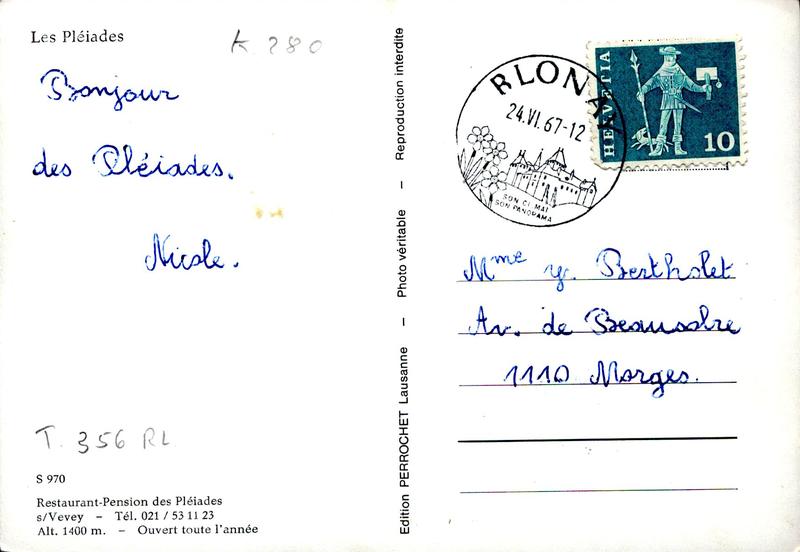 Les Pléiades
K 280
Bonjour
des Pléiades.
Nicole.
T. 356 RL
S 970
Restaurant-Pension des Pléiades
s/Vevey – Tél. 021 / 53 11 23
Alt. 1400 m. – Ouvert toute l'année
Edition PERROCHET Lausanne – Photo véritable – Reproduction interdite
BLONAY
24.VI.67-12
SON CLIMAT
SON PANORAMA
HELVETIA
10
Mme y. Bertholet
Av. de Beausobre
1110 Morges.